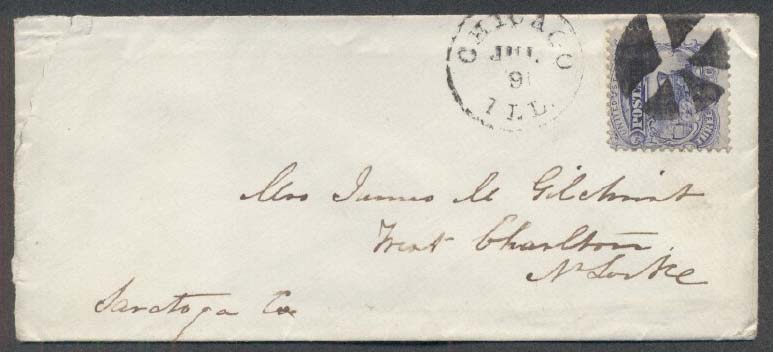 CHICAGO
JUL
9
ILL.
UNITED STATES
POSTAGE
Mrs James M Gilchrist
West Charlton
N York
Saratoga Co